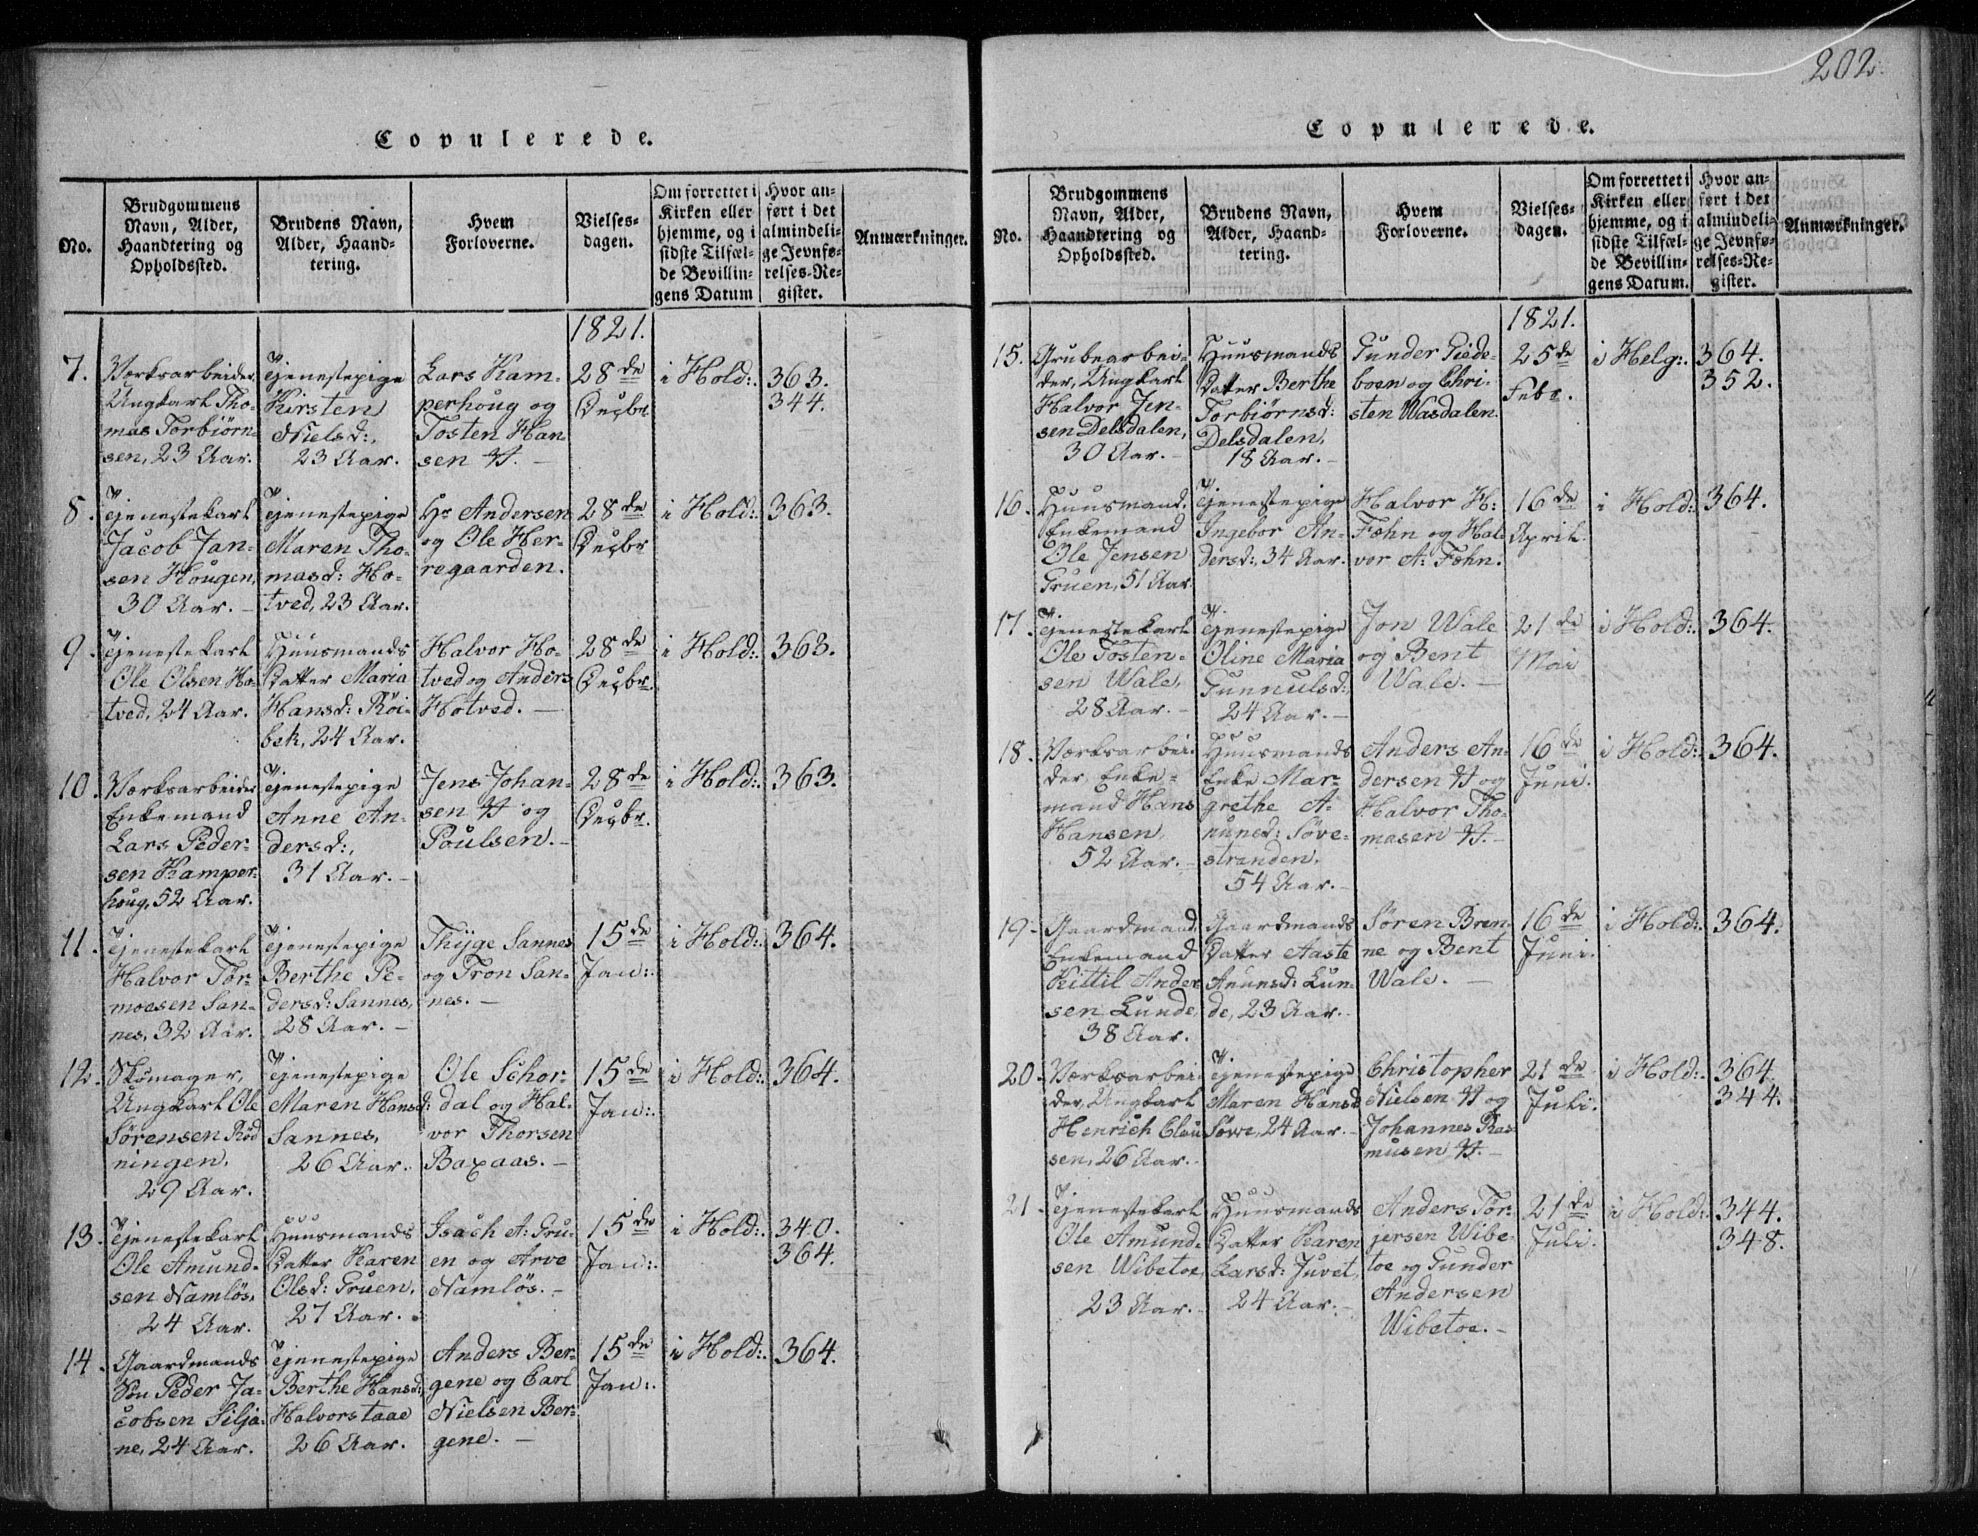 202.
Copulerede.
No.
Brudgommens
Navn, Alder,
Haandtering og
Opholdssted.
Brudens Navn,
Alder, Haand-
tering.
Hvem
Forloverne.
Vielses-
dagen.
Om forrettet i
Kirken eller
hjemme, og i
sidste Tilfæl-
de Bevillin-
gens Datum
Hvor an-
ført i det
almindeli-
ge Jevnfø-
relses-Re-
gister.
Anmærkninger.
1821.
7.
Værksarbeider,
Ungkarl Tho-
mas Torbiörn-
sen, 23 Aar.
Tjenestepige
Kirsten
Nielsd:,
23 Aar.
Lars Kam-
perhoug og
Tosten Han-
sen
28de
Decbr.
i Hold:.
363.
344.
8.
Tjenestekarl
Jacob Jan-
sen Hougen,
30 Aar. -
Tjenestepige
Maren Tho-
masd: Ho-
tved, 23 Aar.
Hs Andersen
og Ole Her-
regaarden.
28de
Decbr
i Hold:.
363.
9.
Tjenestekarl
Ole Olsen Ho-
tved, 24 Aar.
Huusmands
Datter Maria
Hansd: Röi-
bek, 24 Aar.
Halvor Ho-
tved og Anders
Hotved. -
28de
Decbr.
i Hold:.
363.
10.
Værksarbeider
Enkemand
Lars Peder-
sen Kamper-
houg, 52 Aar.
Tjenestepige
Anne An-
dersd:,
31 Aar. -
Jens Johan-
sen og
Poulsen. -
28de
Decbr.
i Hold:.
363.
11.
Tjenestekarl
Halvor Tor-
moesen San-
nes, 32 Aar.
Tjenestepige
Berthe Pe-
dersd: Sannes,
28 Aar. -
Thyge Sannes
og Tron San-
nes. -
15de
Jan:.
i Hold:.
364.
12.
Skomager,
Ungkarl Ole
Sörensen Röd
ningen,
29 Aar.
Tjenestepige
Maren Hansd:
Sannes,
26 Aar.
Ole Schor-
dal og Hal-
vor Thorsen
Baxaas. -
15de
Jan:.
i Hold:.
364.
13.
Tjenestekarl
Ole Amund-
sen Namlös,
24 Aar.
Huusmands
Datter Karen
Olsd: Gruen,
27 Aar.
Isach A: Gru-
en og Arve
Namlös. -
15de
Jan:.
i Hold:.
340.
364.
14.
Gaardmands
Sön Peder Ja-
cobsen Silja-
ne, 24 Aar.
Tjenestepige
Berthe Hansd:
Halvorstaae
26 Aar.
Anders Ber-
gene og Carl
Nielsen Ber-
gene. -
15de
Jan:.
i Hold:.
364.
Copulerede.
No.
Brudgommens
Navn, Alder,
Haandtering og
Opholdssted.
Brudens Navn,
Alder, Haand-
tering.
Hvem
Forloverne.
Vielses-
dagen.
Om forrettet i
Kirken eller
hjemme, og i
sidste Tilfæl-
de Bevillin-
gens Datum.
Hvor an-
ført i det
almindeli-
ge Jevnfø-
relses-Re-
gister.
Anmærkninger.
1821.
15.
Grubearbei-
der, Ungkarl
Halvor Jen-
sen Delsdalen,
30 Aar. -
Huusmands
Datter Berthe
Torbiörnsd:
Delsdalen,
18 Aar. -
Gunder Giede-
boen og Chri-
sten Wasdalen.
25de
Febr.
i Helg:.
364.
352.
16.
Huusmand,
Enkemand
Ole Jensen
Gruen, 51 Aar
Tjenestepige
Ingebor An-
dersd:, 34 Aar.
Halvor H:
Fæhn og Hal-
vor A: Fæhn.
16de
April.
i Hold:.
364.
17.
Tjenestekarl
Ole Tosten-
sen Wale,
28 Aar. -
Tjenestepige
Oline Maria
Gunnulsd:
24 Aar. -
Jon Wale
og Bent
Wale. -
21de
Mai
i Hold:.
364.
18.
Værksarbei-
der, Enke-
mand Hans
Hansen,
52 Aar. -
Huusmands
Enke Mar-
grethe A-
nunsd: Söve-
stranden,
54 Aar. -
Anders An-
dersen og
Halvor Tho-
masen
16de
Juni.
i Hold:
364.
19.
Gaardmand,
Enkemand
Kittil Ander
sen Lunde,
38 Aar.
Gaardmands
Datter Aaste
Anunsd: Lun-
de, 23 Aar.
Sören Bren-
ne og Bent
Wale. -
16de
Juni.
i Hold:
364.
20.
Værksarbei-
der, Ungkarl
Henrich Clau
sen, 26 Aar.
Tjenestepige
Maren Hansd
Söwe, 24 Aar. -
Christopher
Nielsen og
Johannes Ras
musen
21de
Juli.
i Hold:.
364.
344.
21.
Tjenestekarl
Ole Amund-
sen Wibetoe,
23 Aar. -
Huusmands
Datter Karen
Larsd: Juvet,
24 Aar. -
Anders Tor-
jersen Wibe-
toe og Gunder
Andersen
Wibetoe. -
21de
Juli.
i Hold:.
344.
348.